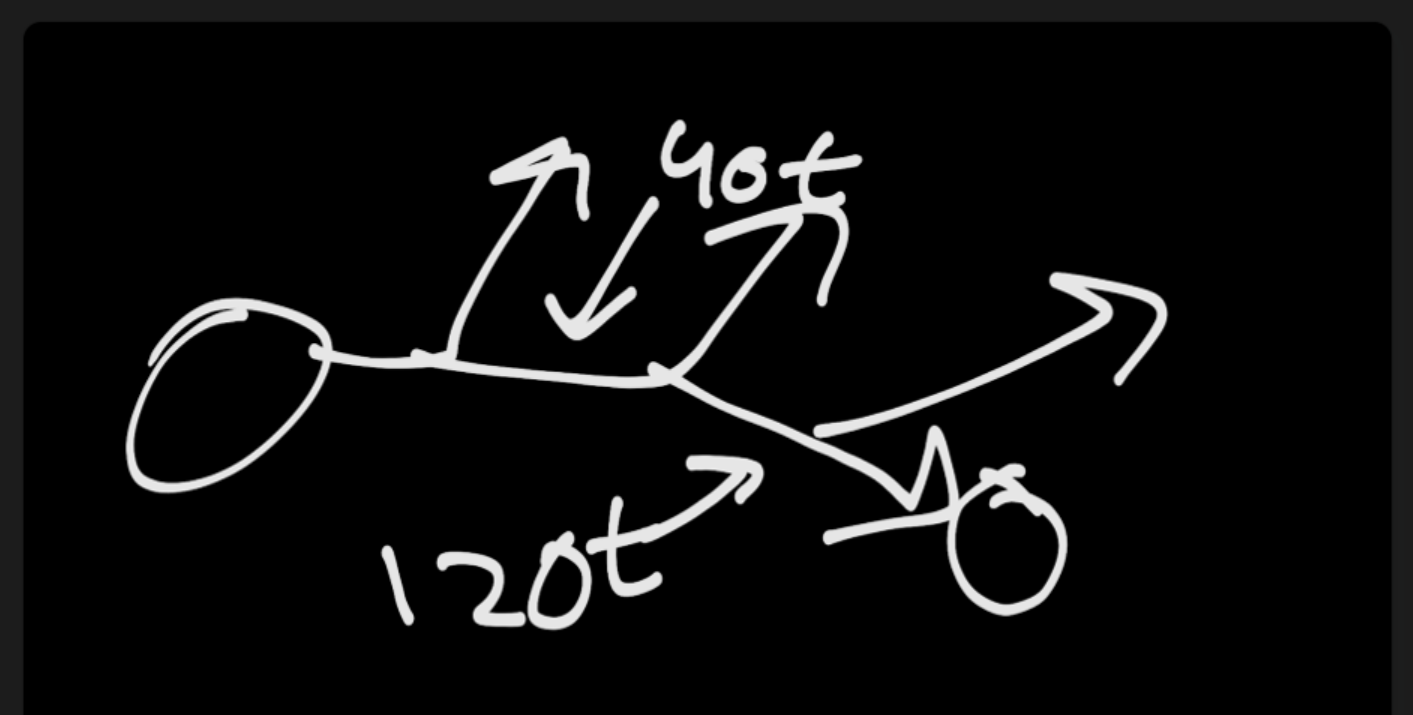 40t
120t